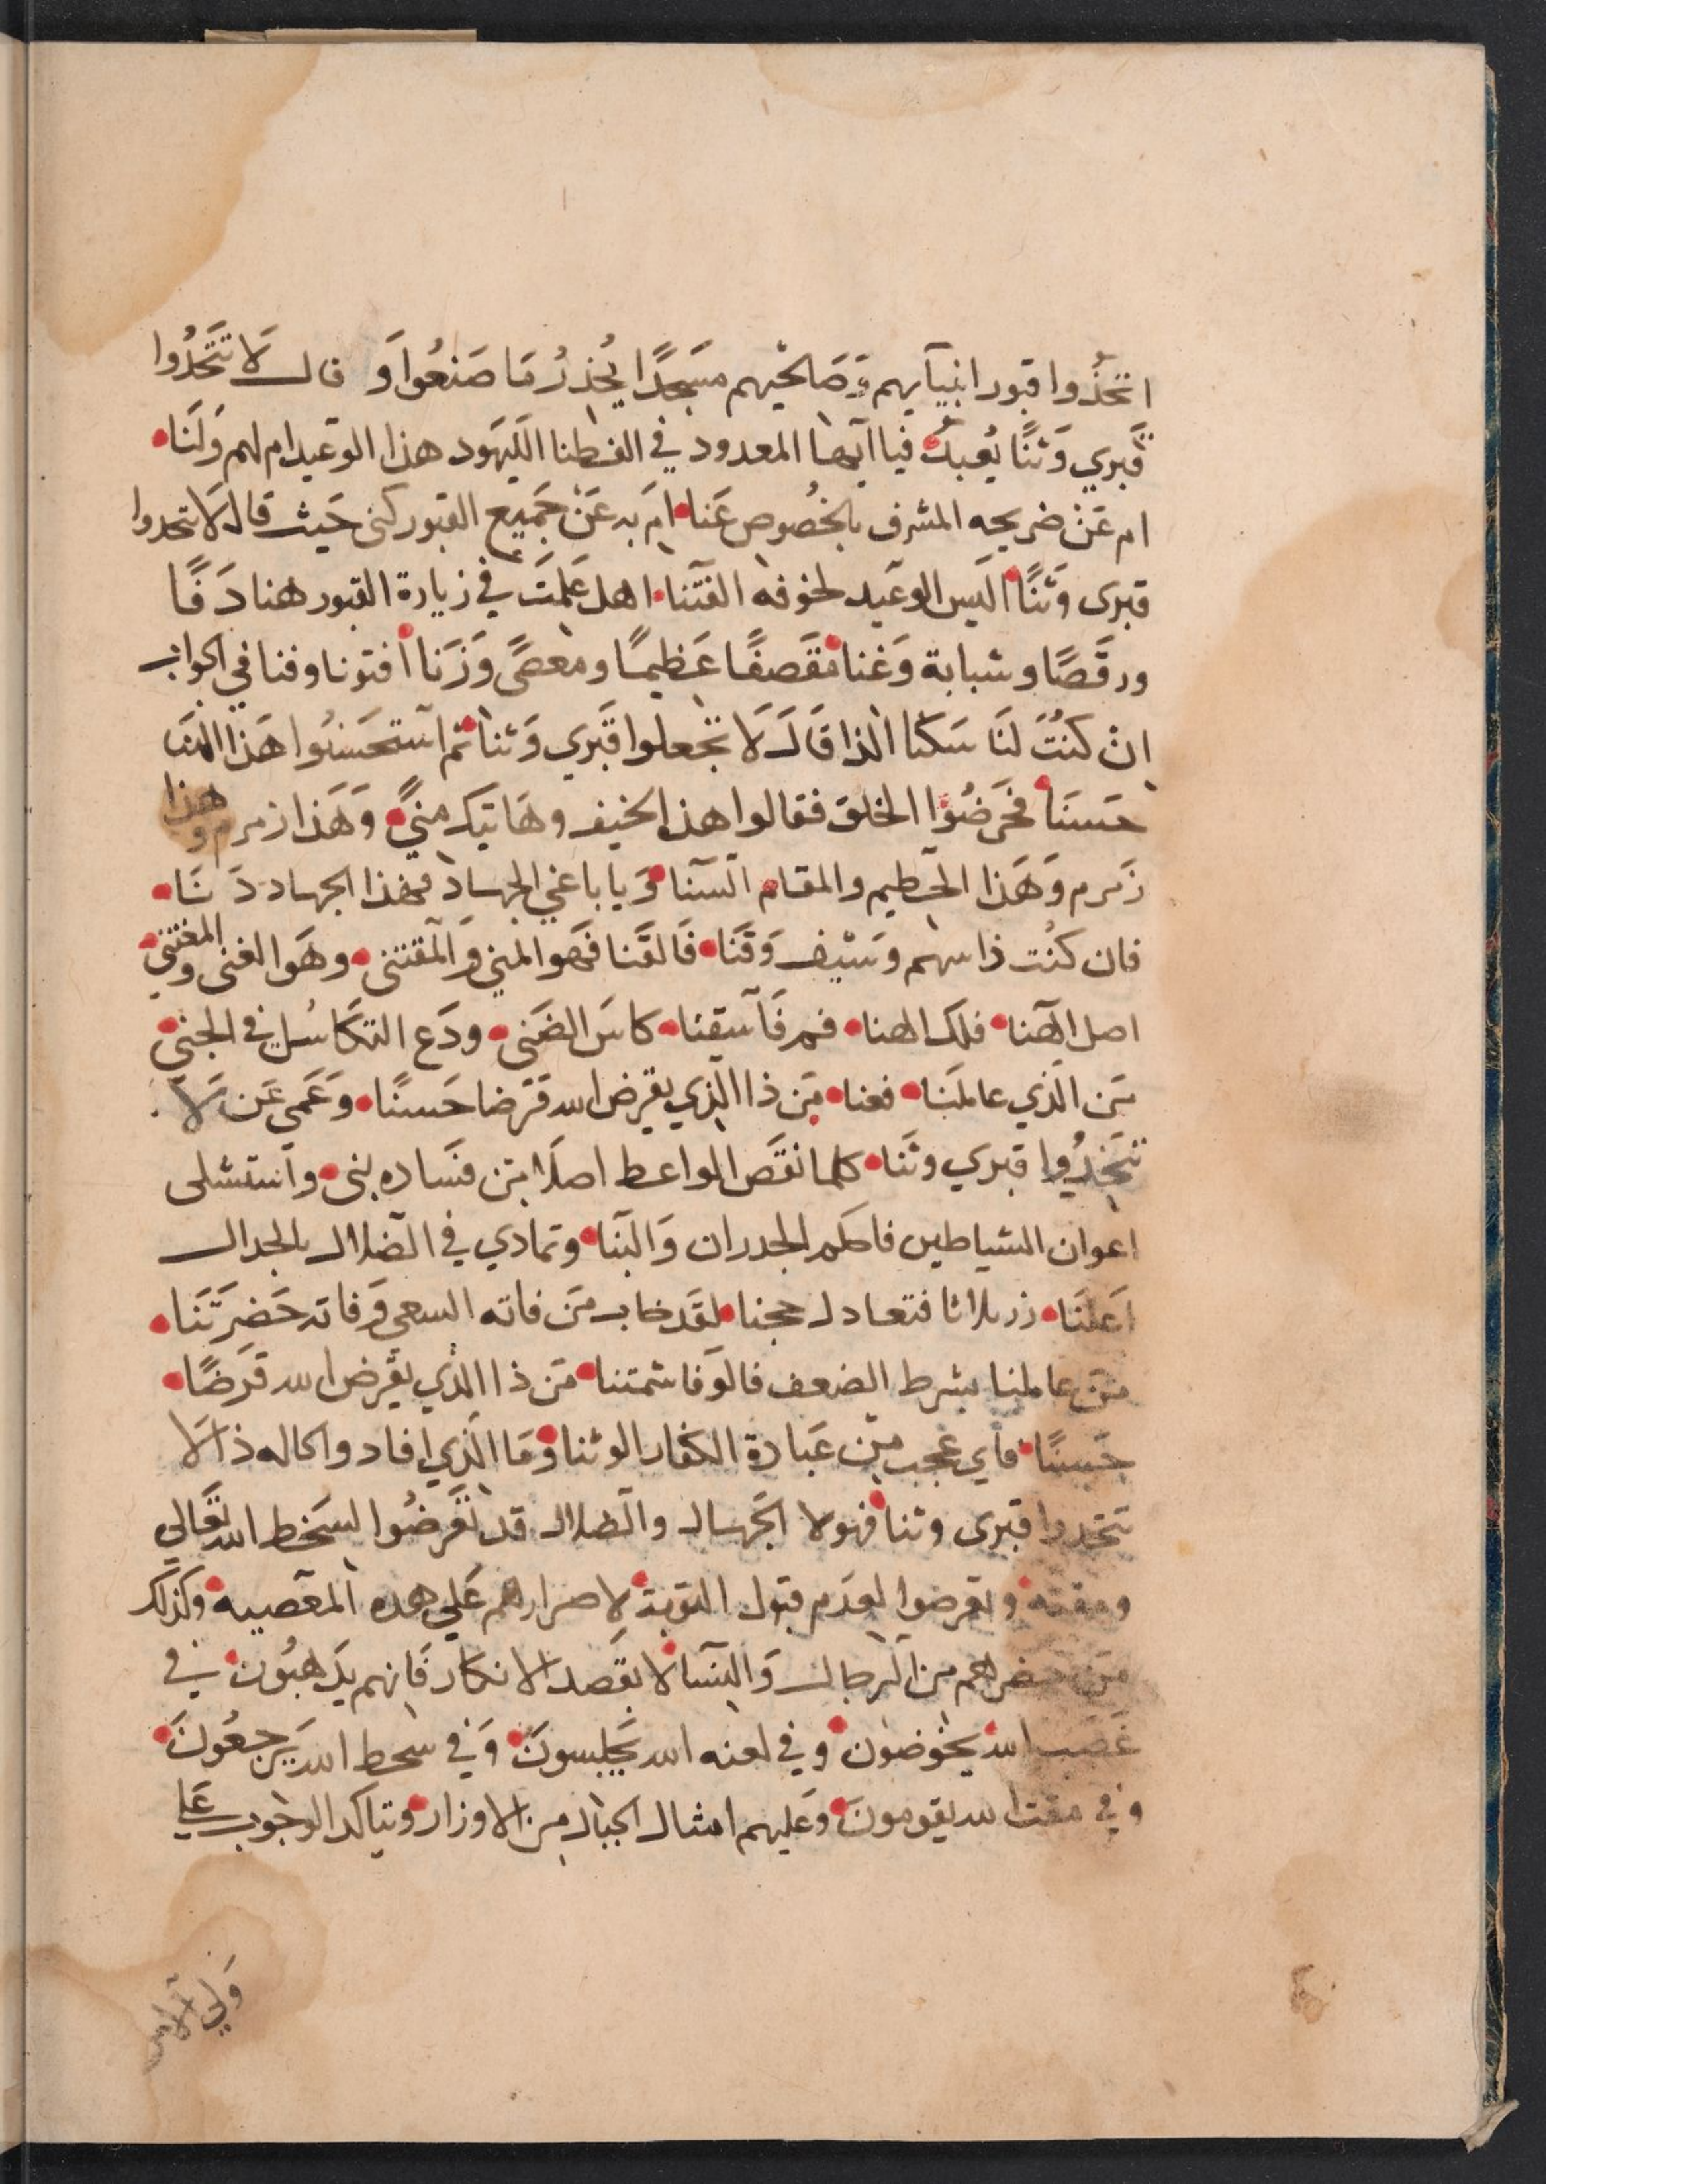 اتخذوا قبور انبيآيهم وَصَالحيهم مسَجدًا يُحذرُ مَا صَنعُوا وَ قالـ لَا تَتَّخذُوا
قَبري وَثنًا يُعبدُ فيا ايها المعدود في الفطنا اَلليَهود هذا الوَعيد ام لهم وَلنَا
ام عَن ضريحه المشرف بالخصُوص عَنا ام به عَن جَميع القبور كنى حَيث قال لَا تتخدوا
قبرى وَثنًا اليس الوعَيد لخوفه الفتَنا اهل عَلمتَ في زيارة القبور هنا دَفًا
ورقَصًا وشبابة وَغنا مَقصفًا عَظيمًا ومعصًى وَزَنا افتونا وفنا في الجواب
ان كنتُ لنَا سَكنا الذا قَالَ لَا تجعلوا قَبري وَثنا ثم استحسَنُوا هَذا المنَا
حسَنَا فحَرضُوا الخلق فقالوا هذا الخيف وهَاتيك منيً وَهَذا زمرم وهذا
زَمرم وَهَذا الحطيم والمقام السَنا وَيا باغي الجهاد فهذا الجهاد دَنَا
فان كنُت ذا سهم وسَيف وَقَنَا فَالقَنا فهَو المني وَالمقتنى وهَو الغنى والمغتني
اصل الهنا فلك الهنا قم فَاسقنا كاسَ الضَنى ودَع التكَاسُل في الجنى
مَن الَّذي عاملنَا فعنا مَن ذا الذي يقرض الله قَرضا حَسنًا وَعَمي عَن لَا
تتخذُوا قبري وثَنا كلما نقَص الواعط اصلَا مَن فسَاده بنى واستشلى
اعوان الشياطين فاحكم الجدران وَالبَنا وتمادي في الضلال بالجدال
اَعلنَا زر ثلاثا فتعادل حجنا لقَد خاب مَن فاته السعي وَفاته حَضرَتَنا
مَن عاملنا بشرط الضعف فالوَفا شمتنا مَن ذا الذي يقَرض الله قَرَضًا
حَسنًا فأي عجب من عَبادة الكفار الوثنا وَمَا الَّذي افاد واكاله ذا لَا
تتخدوا قبرى وثنا فهولا الجَهال والضلال قد تعَرضُوا لسَخط الله تعَالي
ومقته وتعَرضوا لعدَم قبول التوبة لاصرارهم عَلي هده المعَصيه وكذلك
مَن حضرهم من الرجال وَالنسَا لا بقَصد الانكار فَانهم يدَهبُون في
غَضب الله يخوَضون وفي لعنه الله يَجلسونَ وَفي سحط الله يَرجعُونَ
وفي مقت الله يقومونَ وَعَليهم امثال الجبال من الاوزار ويتاكد الوجوب عَلي
وَلي الامر